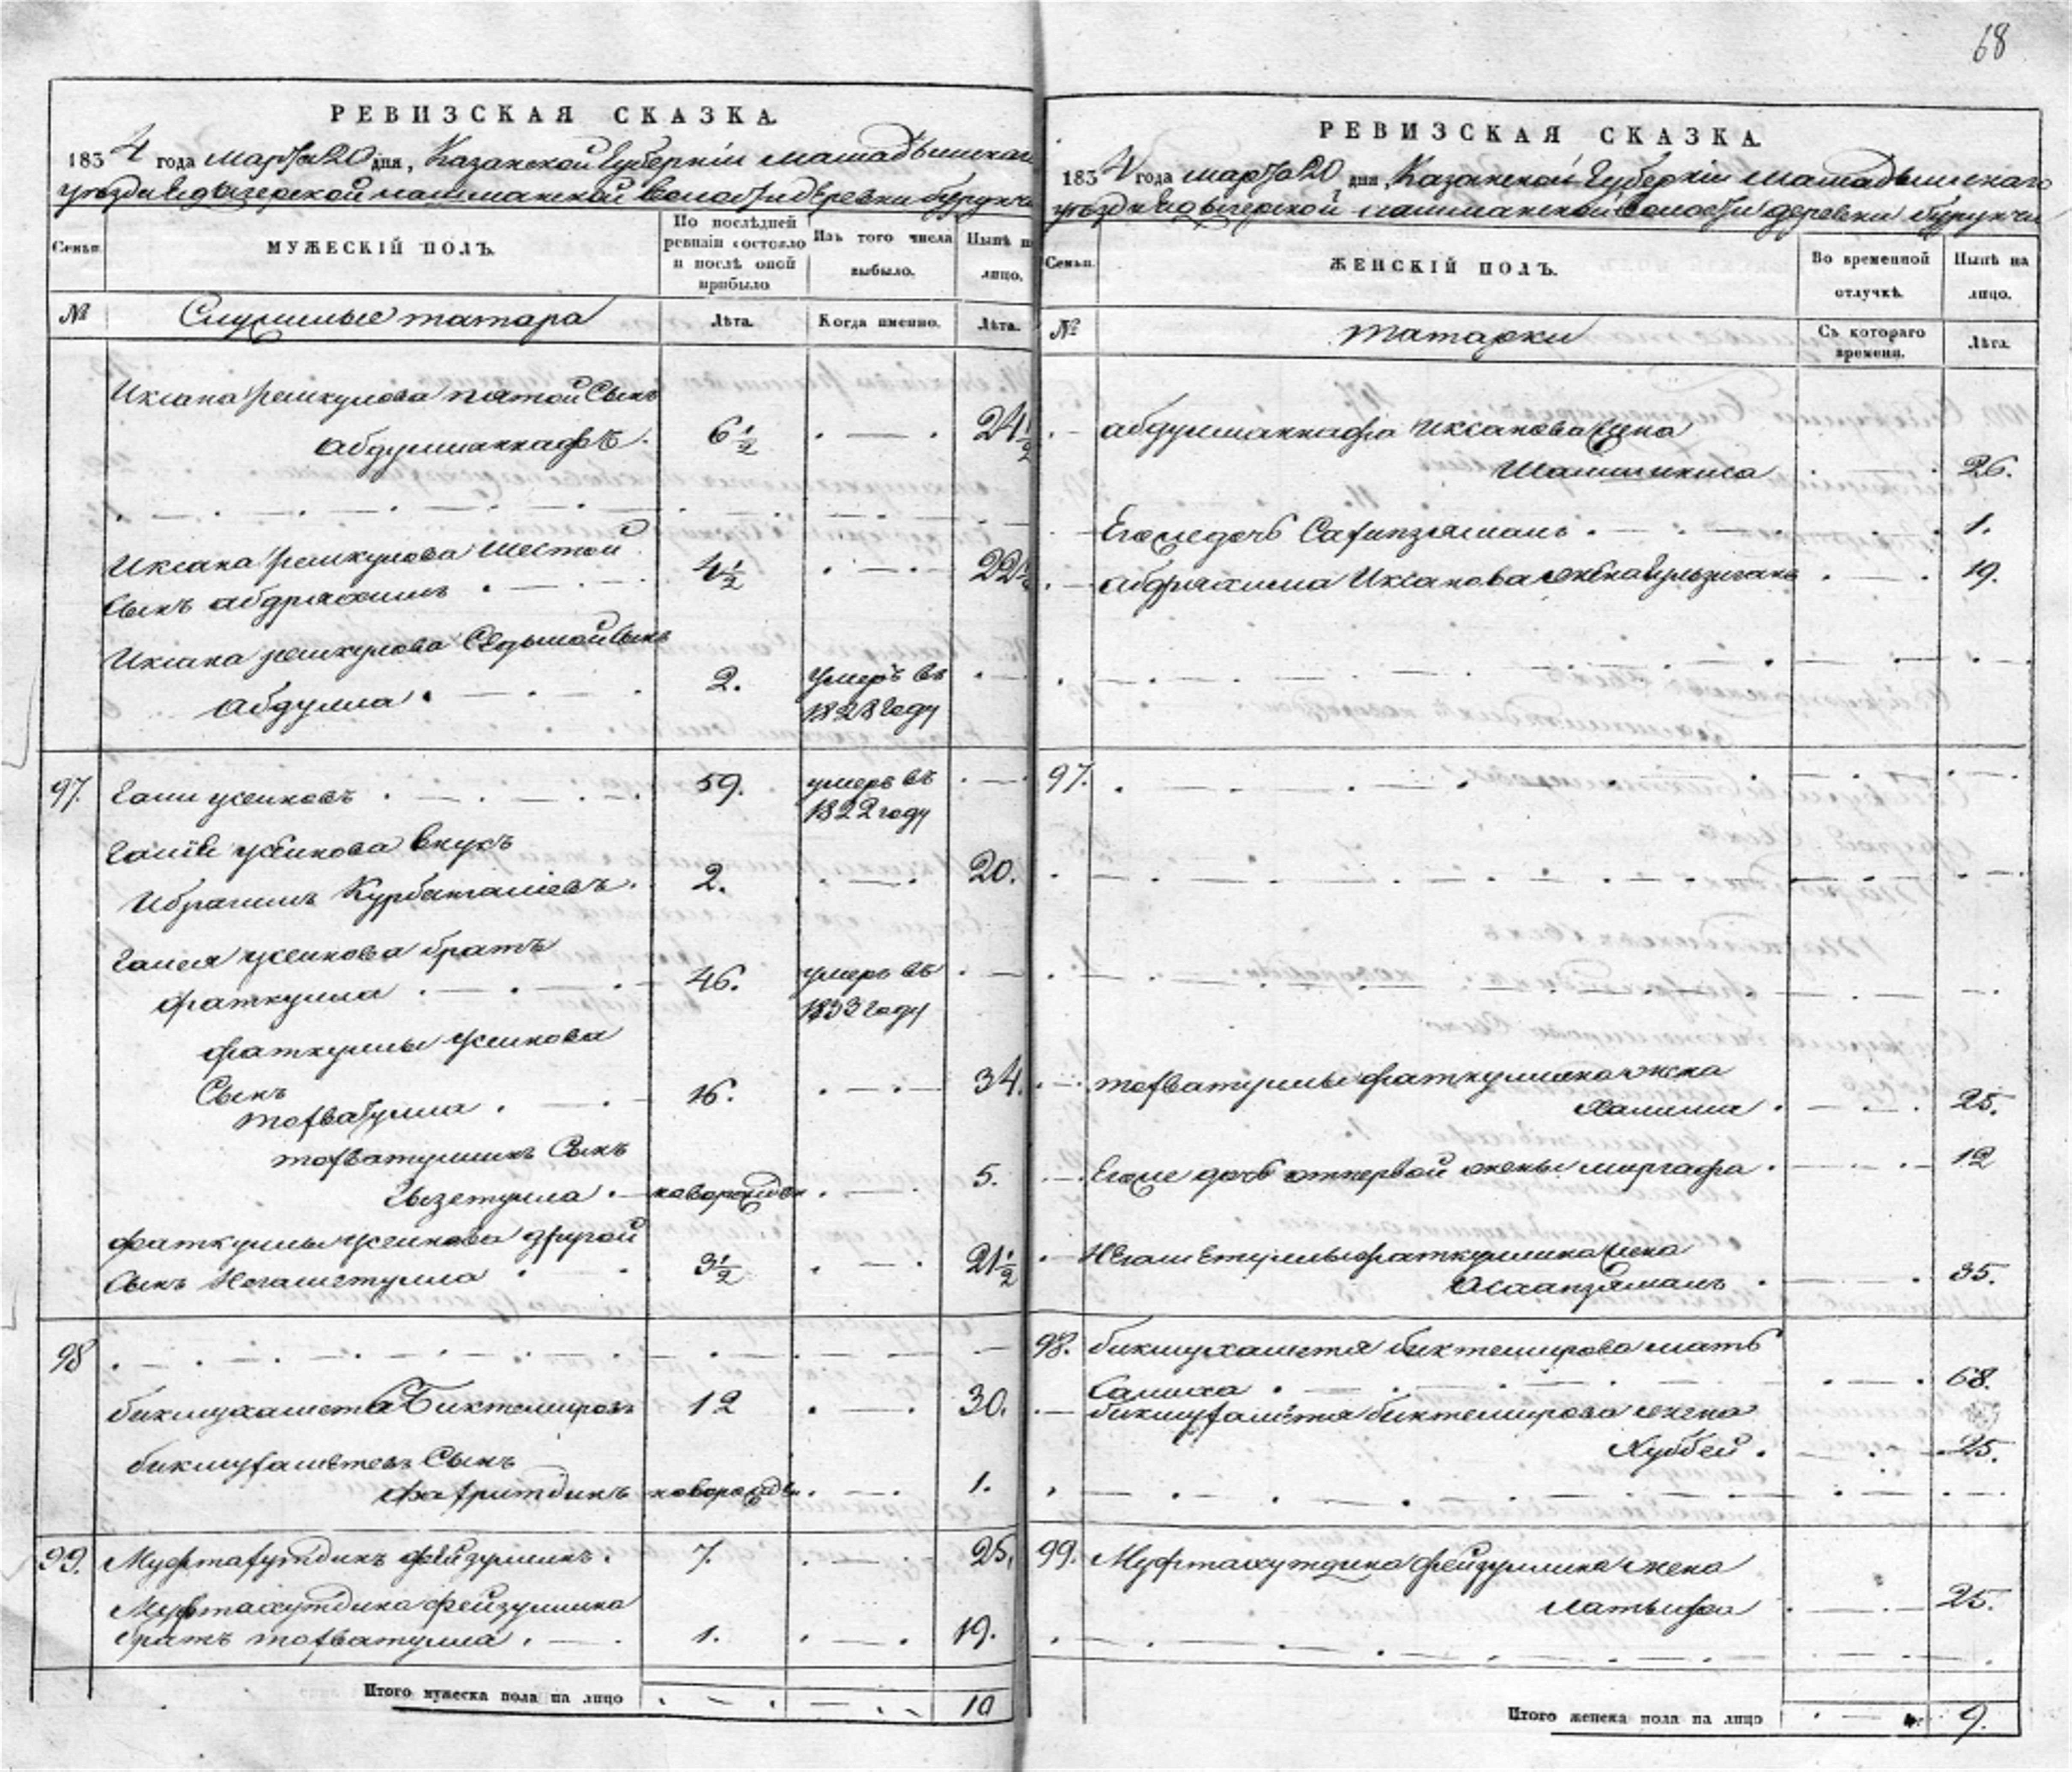 68
РЕВИЗСКАЯ СКАЗКА.
1834 года марта 20 дня, Казанской Губерніи мамадышскаго
уѣзда деревни бурунчи
Семьи.
МУЖЕСКІЙ ПОЛЪ.
По послѣдней ревизіи состояло и послѣ оной прибыло
Изъ того числа выбыло.
Нынѣ на лицо.
№
Служилые татара
Лѣта.
Когда именно.
Лѣта.
Иксана пятой Сынъ
абдулманнафъ. 6½ 24½
Иксана Шестой
Сынъ абдряхимъ 4½ 22½
Иксана Седьмой Сынъ
абдулла 2. умеръ въ
1828 году
97. Гали усеиновъ 59. умеръ въ
1822 году
усеинова внукъ
Ибрагимъ Курбангаліевъ. 2. 20.
Галея усеинова братъ
фаткулла 46. умеръ въ
1833 году
фаткуллы усеинова
Сынъ
тохватулла 16. 34.
тохватуллинъ Сынъ
Гызетулла новорожден 5.
фаткуллы усеинова другой
Сынъ Негаметулла 3½ 21½
98
бикмухаметъ Биктемировъ 12 30.
бикмухаметевъ Сынъ
Фахритдинъ новорожден 1.
99. Муфтахутдинъ фейзуллинъ. 7. 25.
Муфтахутдина Фейзуллина
братъ тохватулла 1. 19.
Итого мужеска пола на лицо 10
РЕВИЗСКАЯ СКАЗКА.
1834 года марта 20 дня, Казанской Губерніи мамадышскаго
уѣзда волости деревни бурунчи
Семьи.
ЖЕНСКІЙ ПОЛЪ.
Во временной отлучкѣ.
Нынѣ на лицо.
№
татарки
Съ котораго времени.
Лѣта.
абдулманнафа Иксанова жена
26.
Егоже дочь Сахипзямалъ 1.
абдряхима Иксанова жена 19.
97.
тохватуллы фаткуллина жена
Халима 25.
Егоже дочь отпервой жены 12
Негаметуллы фаткуллина жена
35.
98. бикмухаметя биктемирова мать
Салиха 68.
бикмухаметя биктемирова жена
Хуббей 25.
99. Муфтахутдина фейзуллина жена
Латыфа 25.
Итого женска пола на лицо 9.